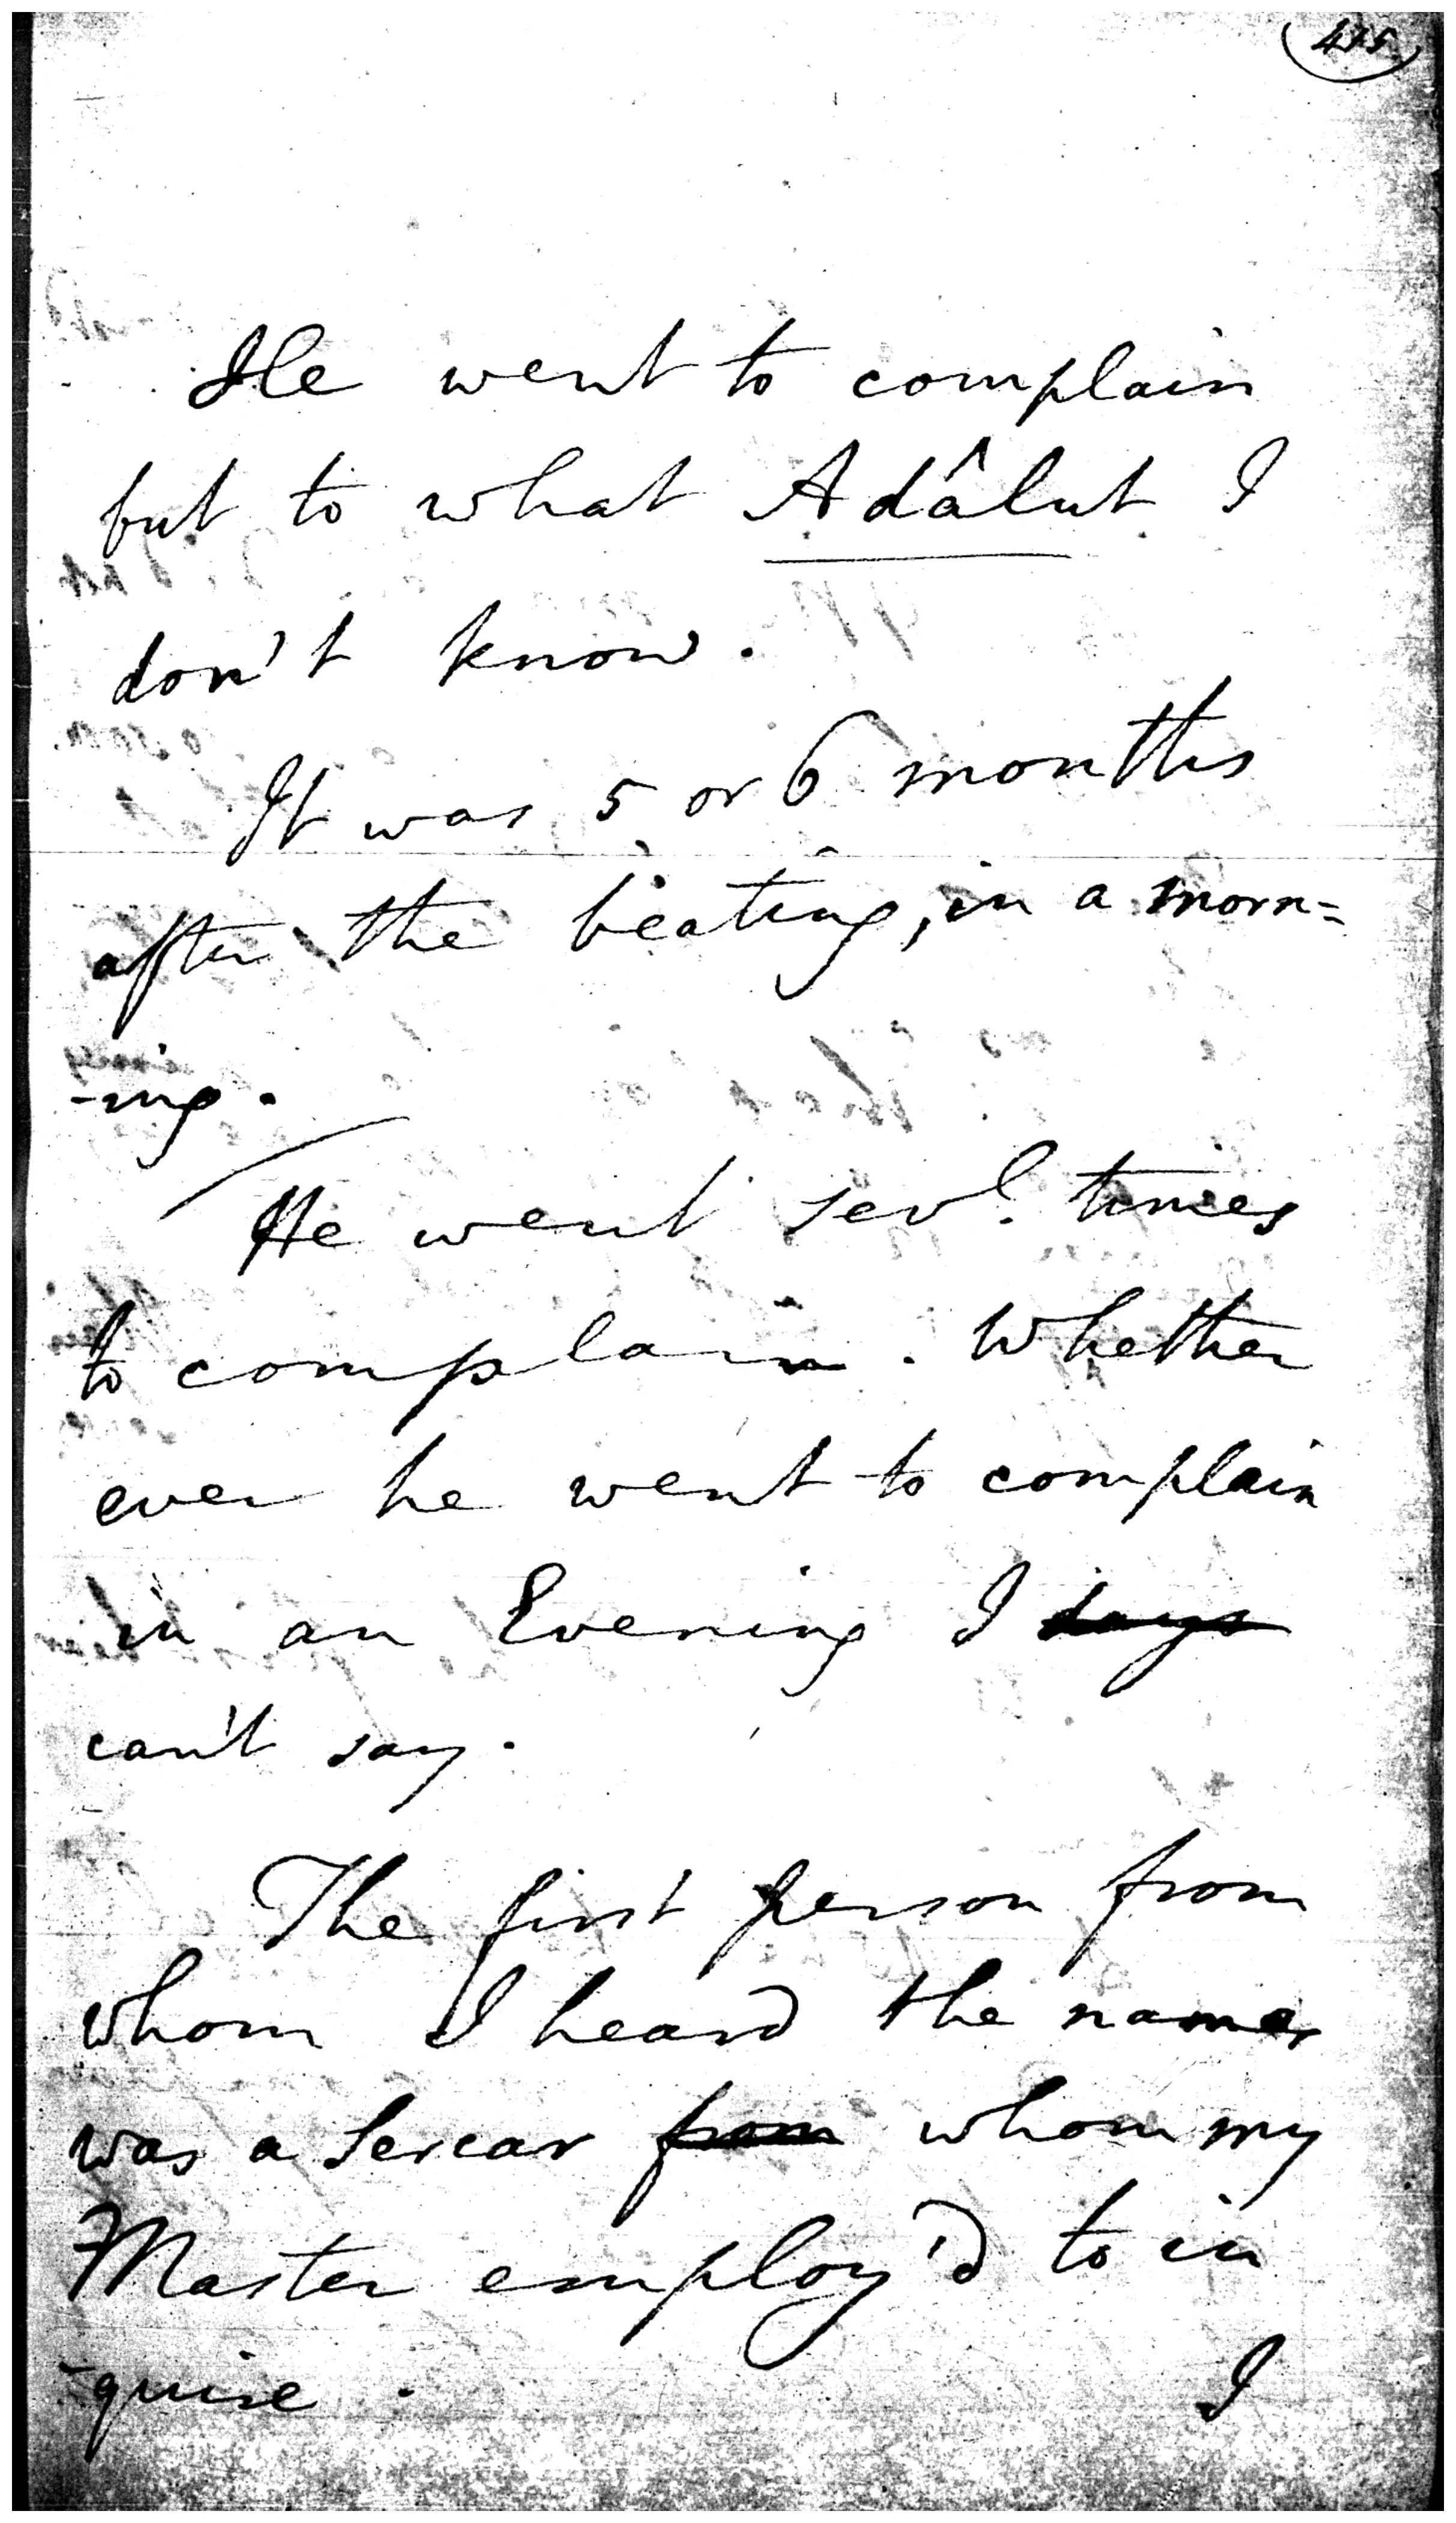 475
He went to complain
but to what Adâlut I
don't know.
It was 5 or 6 months
after the beating, in a morn=
-ing.
He went sevl. times
to complain. Whether
ever he went to complain
in an Evening I says
can't say.
The first person from
whom I heard the names
was a Sercar from whom my
Master employ'd to in
-quire. I